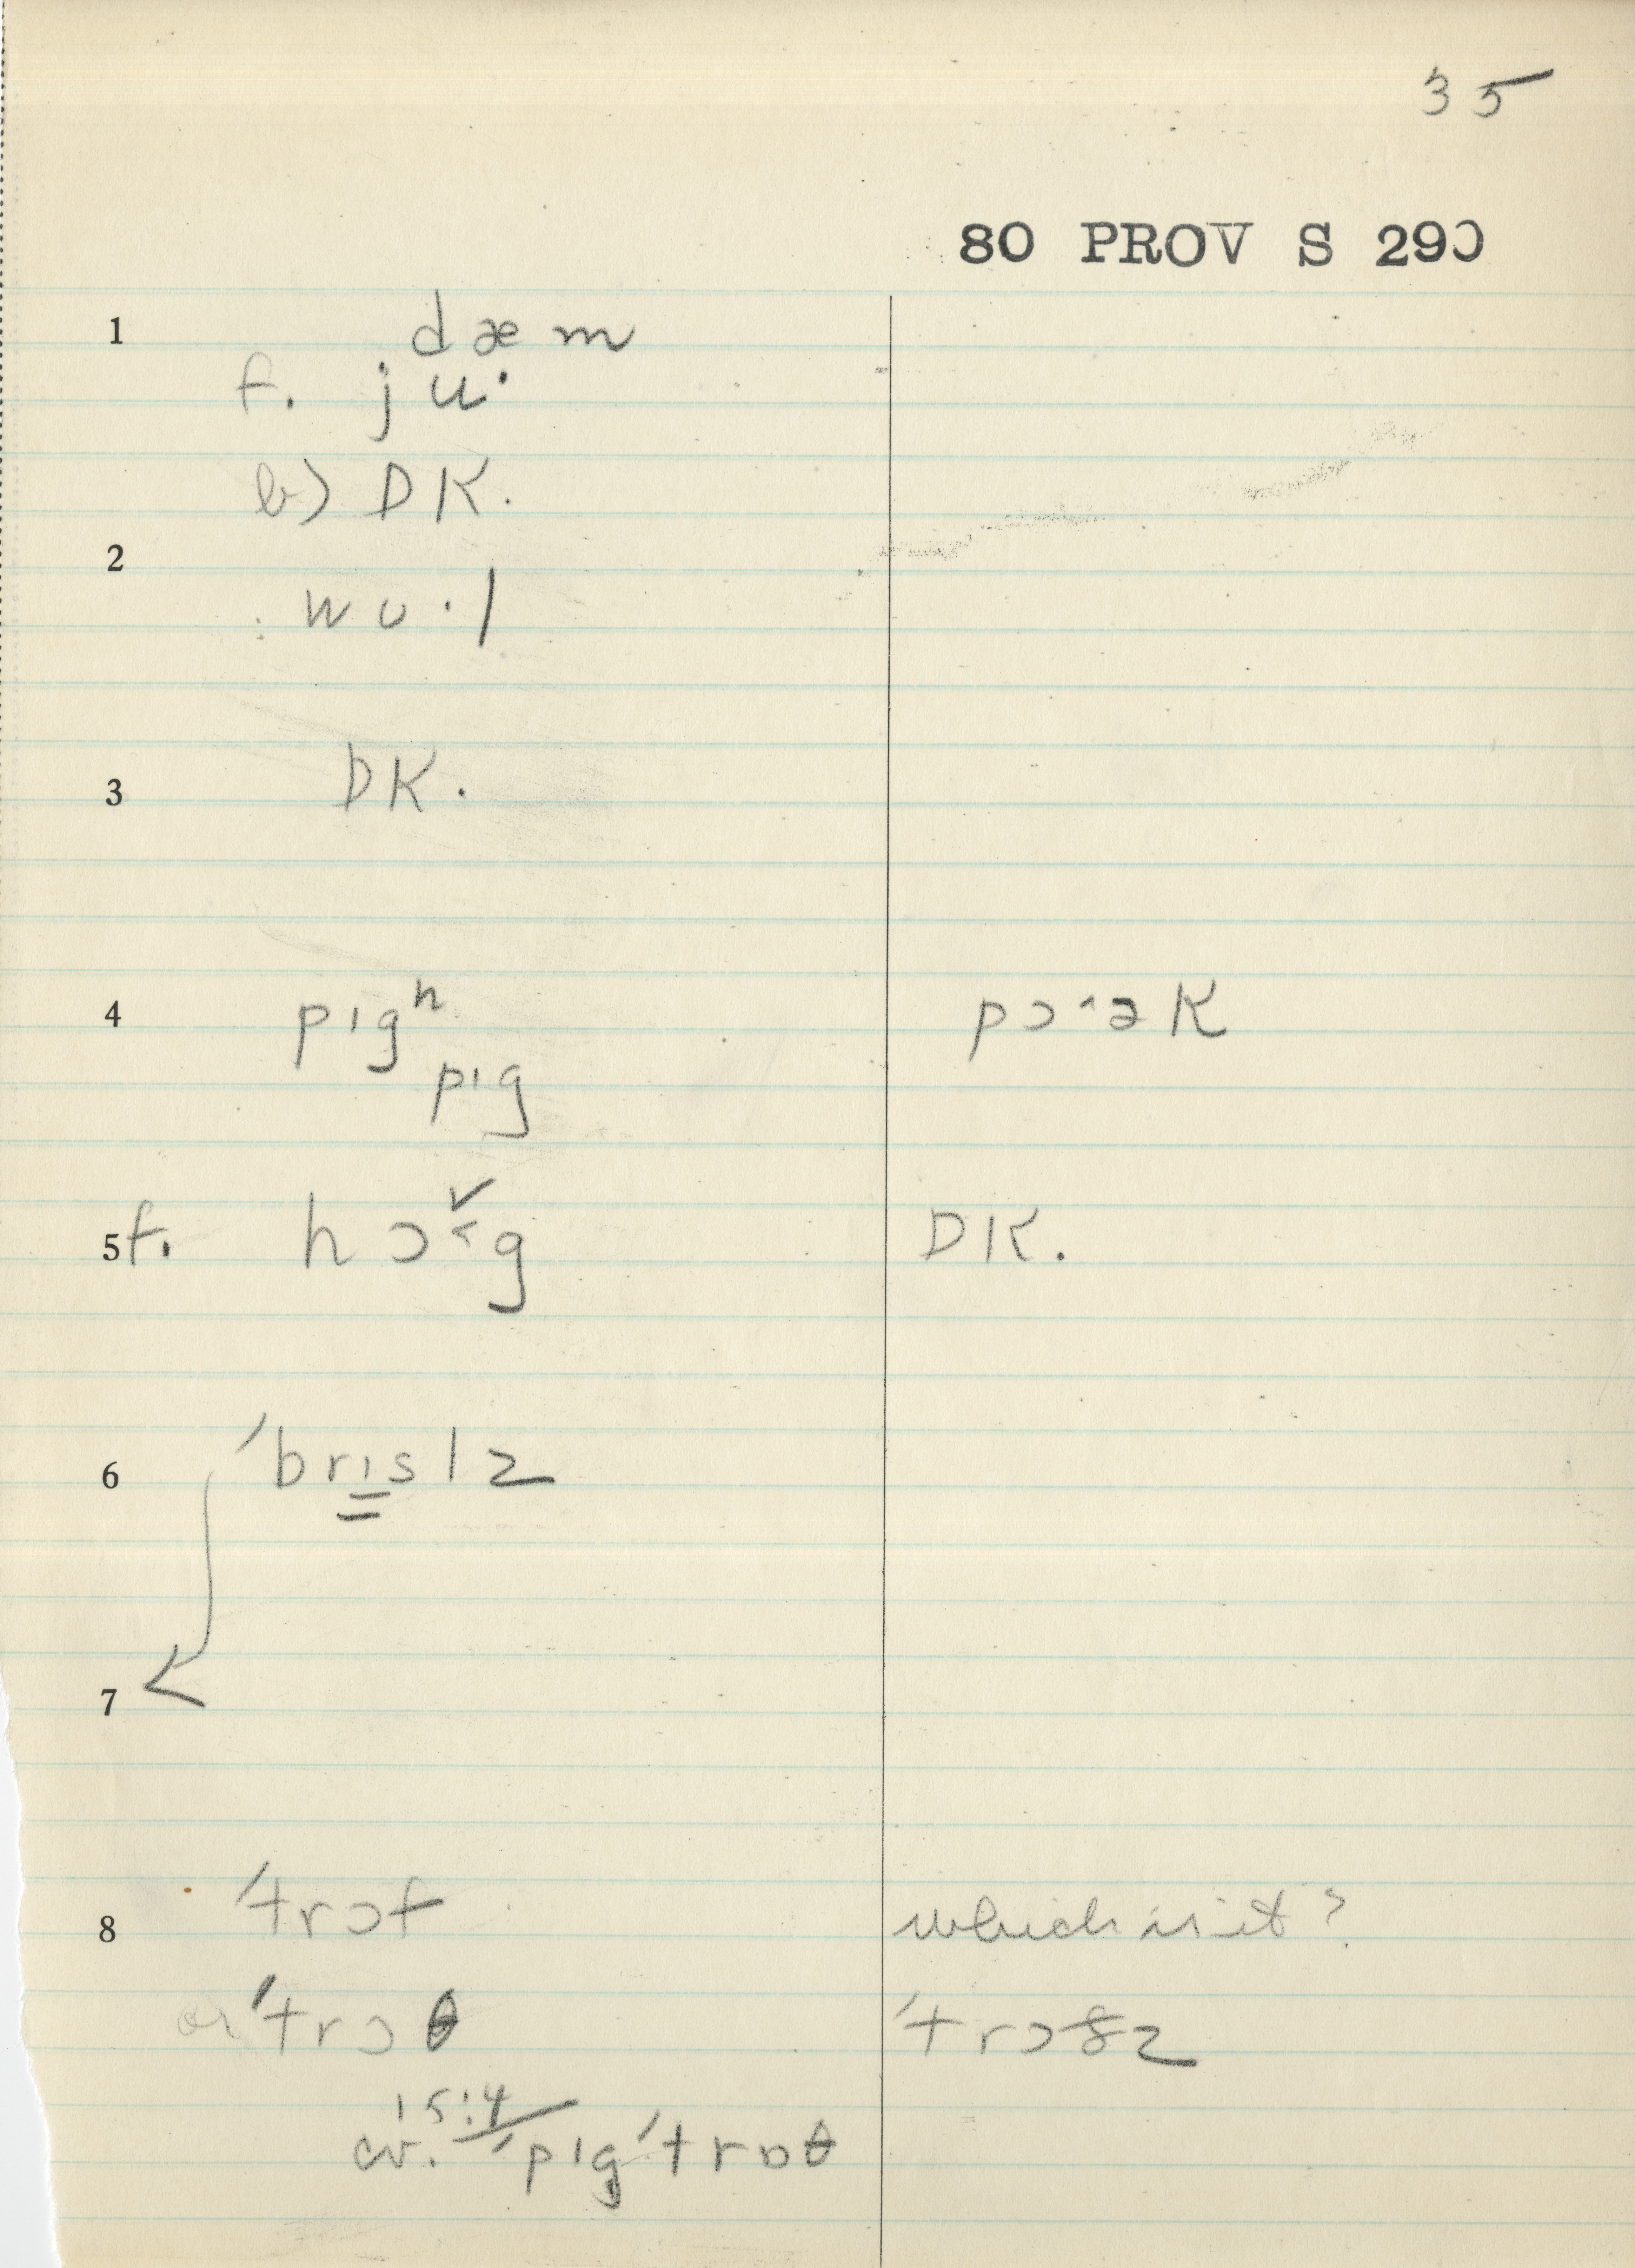 35
80 PROV S 290
1 dæm
f. ju·
b) DK.
2
wʊ·l
3 DK.
4 pɪgʰ pɔ˔ək
pɪg
5 f. hɔ˂g DK.
6 ˈbrɪslz
7
8 ˈtrɔf which is it?
or ˈtrɔθ ˈtrɔðz
15:4
cv. ˈpɪgˈtrɒθ